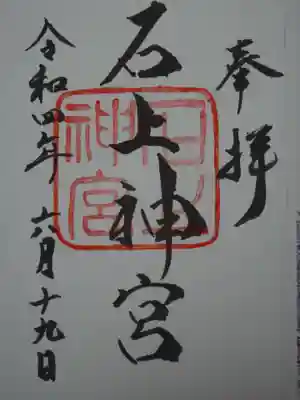 奉拝
石上神宮
石上
神宮
令和四年六月十九日